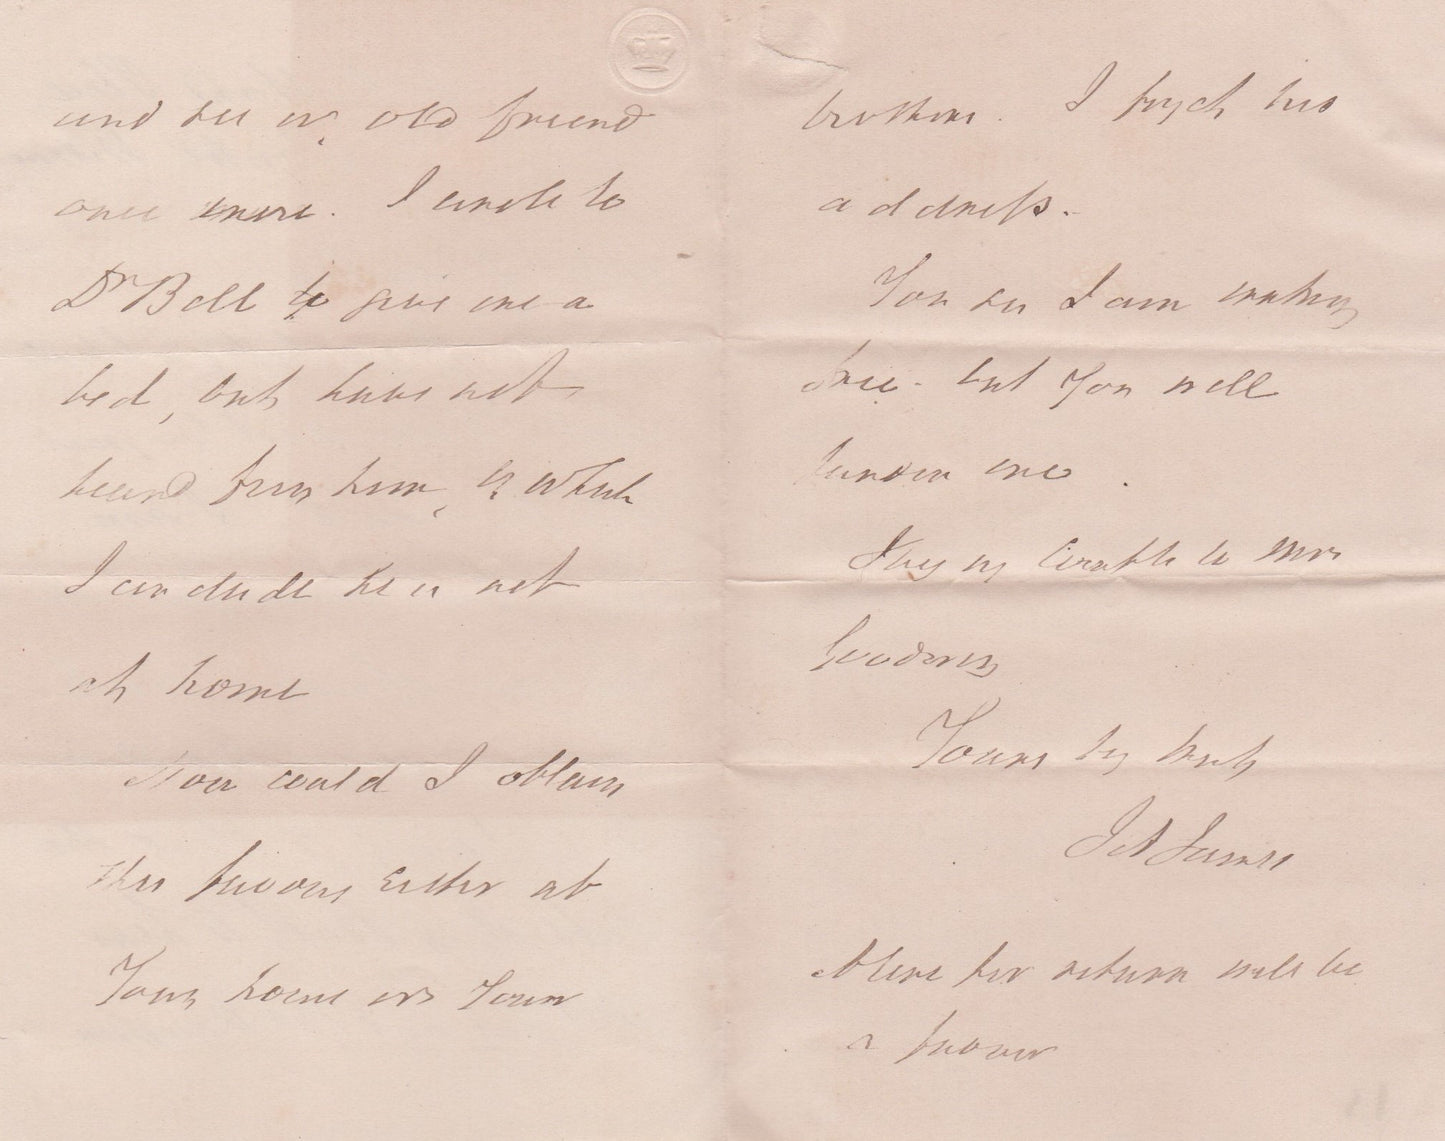 and see an old friend
once more. I wrote to
Dr Bell to give me a
bed, but have not
heard from him, by which
I conclude he is not
at home
Now could I obtain
this favour either at
Your home or Your
brothers. I forget his
address.
You see I am making
free - but You will
pardon me.
to Mrs
Yours truly
James
return will be
a favour